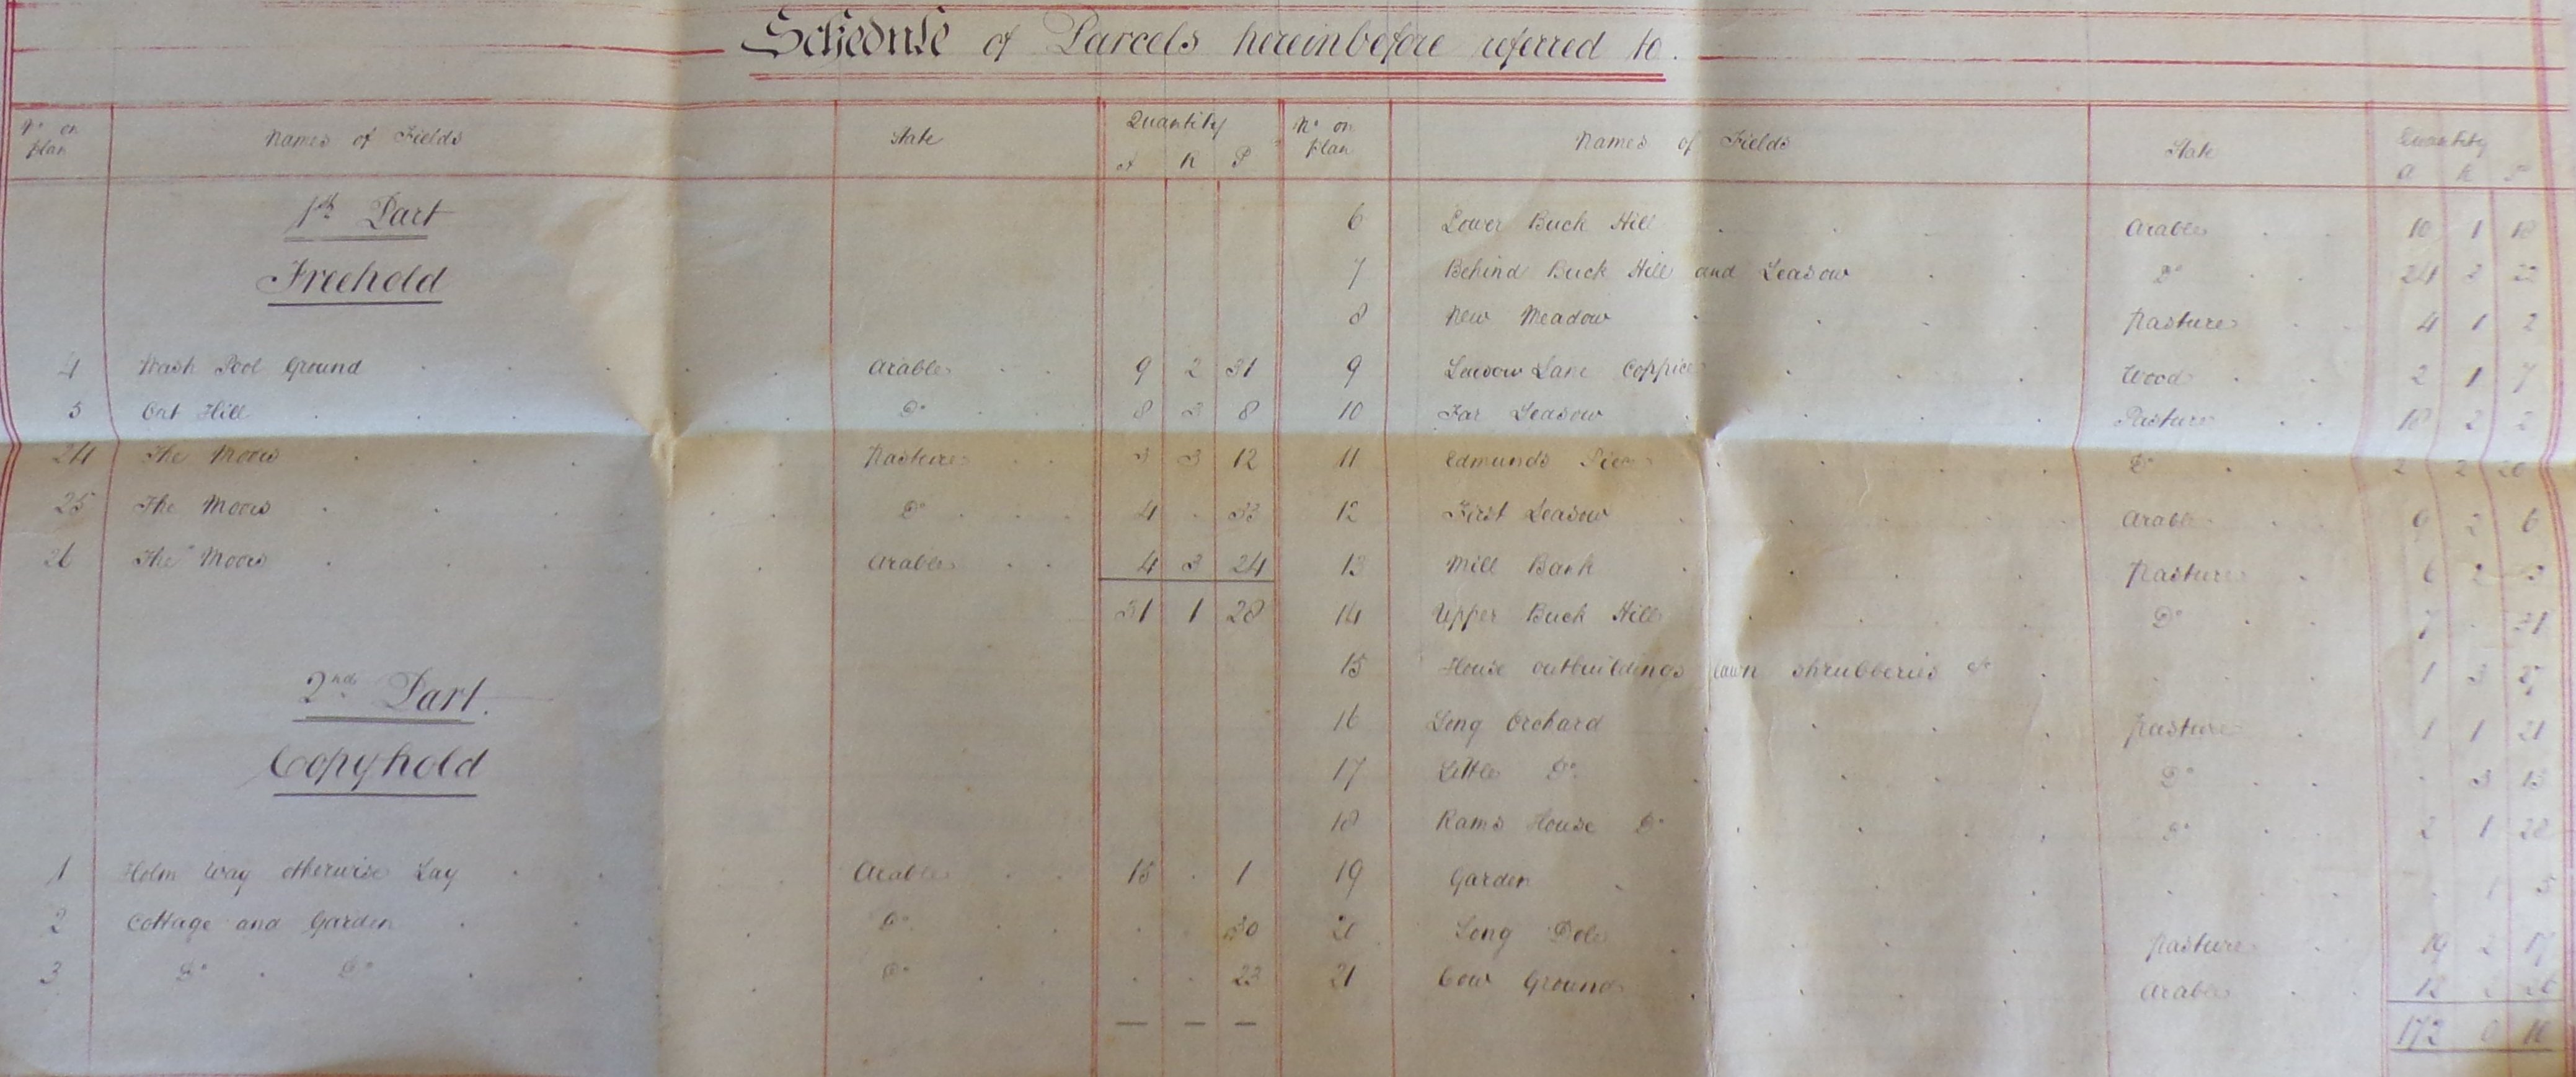 Schedule of Parcels hereinbefore referred to.
No on plan Names of Fields State Quantity A R P
1st Part
Freehold
4 Wash Pool Ground Arable 9 2 31
5 Oat Hill Do 8 3 8
24 The Moors Pasture 3 3 12
25 The Moors Do 4 . 33
26 The Moors Arable 4 3 24
31 1 28
2nd Part.
Copyhold
1 Holm Way otherwise Lay Arable 15 . 1
2 Cottage and Garden Do . . 30
3 Do . Do Do . . 23
No on plan Names of Fields State Quantity A R P
6 Lower Buck Hill Arable 10 1 18
7 Behind Buck Hill and Leasow Do 24 3 22
8 New Meadow Pasture 4 1 2
9 Leasow Lane Coppice Wood 2 1 7
10 Far Leasow Pasture 18 2 2
11 Edmunds Piece Do 2 2 20
12 First Leasow Arable 6 2 6
13 Mill Bank Pasture 6 2
14 Upper Buck Hill Do 7 .
15 House outbuildings lawn shrubberies &c 1 3
16 Long Orchard Pasture 1 1 21
17 Little Do. Do . 3 13
18 Rams House Do Do 2 1
19 Garden . 1 5
20 Long Dole Pasture 19 2 17
21 Cow Ground Arable 12 2 26
172 0